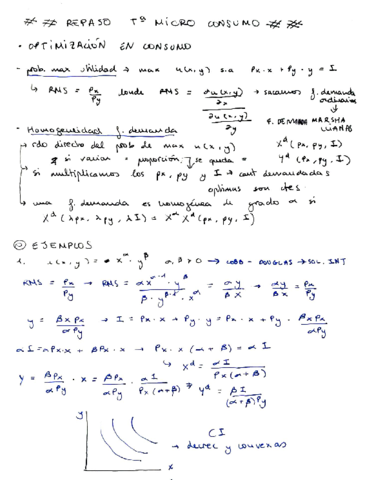 ## REPASO Tª MICRO CONSUMO ##
• OPTIMIZACIÓN EN CONSUMO
- prob. max utilidad → max u(x,y) s.a Px·x + Py·y = I
↳ RMS = Px/Py donde RMS = (∂u(x,y)/∂x)/(∂u(x,y)/∂y) → sacamos f. demanda ordinarias
F. DEMANDA MARSHALLIANAS
- Homogeneidad f. demanda
→ cdo directo del prob de max u(x,y) x^d(px, py, I)
si varían = proporción, se queda = y^d(px, py, I)
→ si multiplicamos los px, py y I → cant demandadas óptimas son ctes
→ una f. demanda es homogénea de grado α si
x^d(λpx, λpy, λI) = λ^α x^d(px, py, I)
EJEMPLOS
1. u(x,y) = x^α · y^β α, β > 0 → COBB-DOUGLAS → SOL. INT
RMS = Px/Py → RMS = (αx^(α-1) · y^β)/(β·y^(β-1)·x^α) = αy/βx → αy/βx = Px/Py
y = βxPx/αPy → I = Px·x + Py·y = Px·x + Py · βxPx/αPy
αI = αPx·x + βPx·x → Px·x(α+β) = αI
↳ x^d = αI/(Px(α+β))
y = βPx/αPy · x = βPx/αPy · αI/(Px(α+β)) → y^d = βI/((α+β)Py)
y
CI
→ decrec y convexas
x